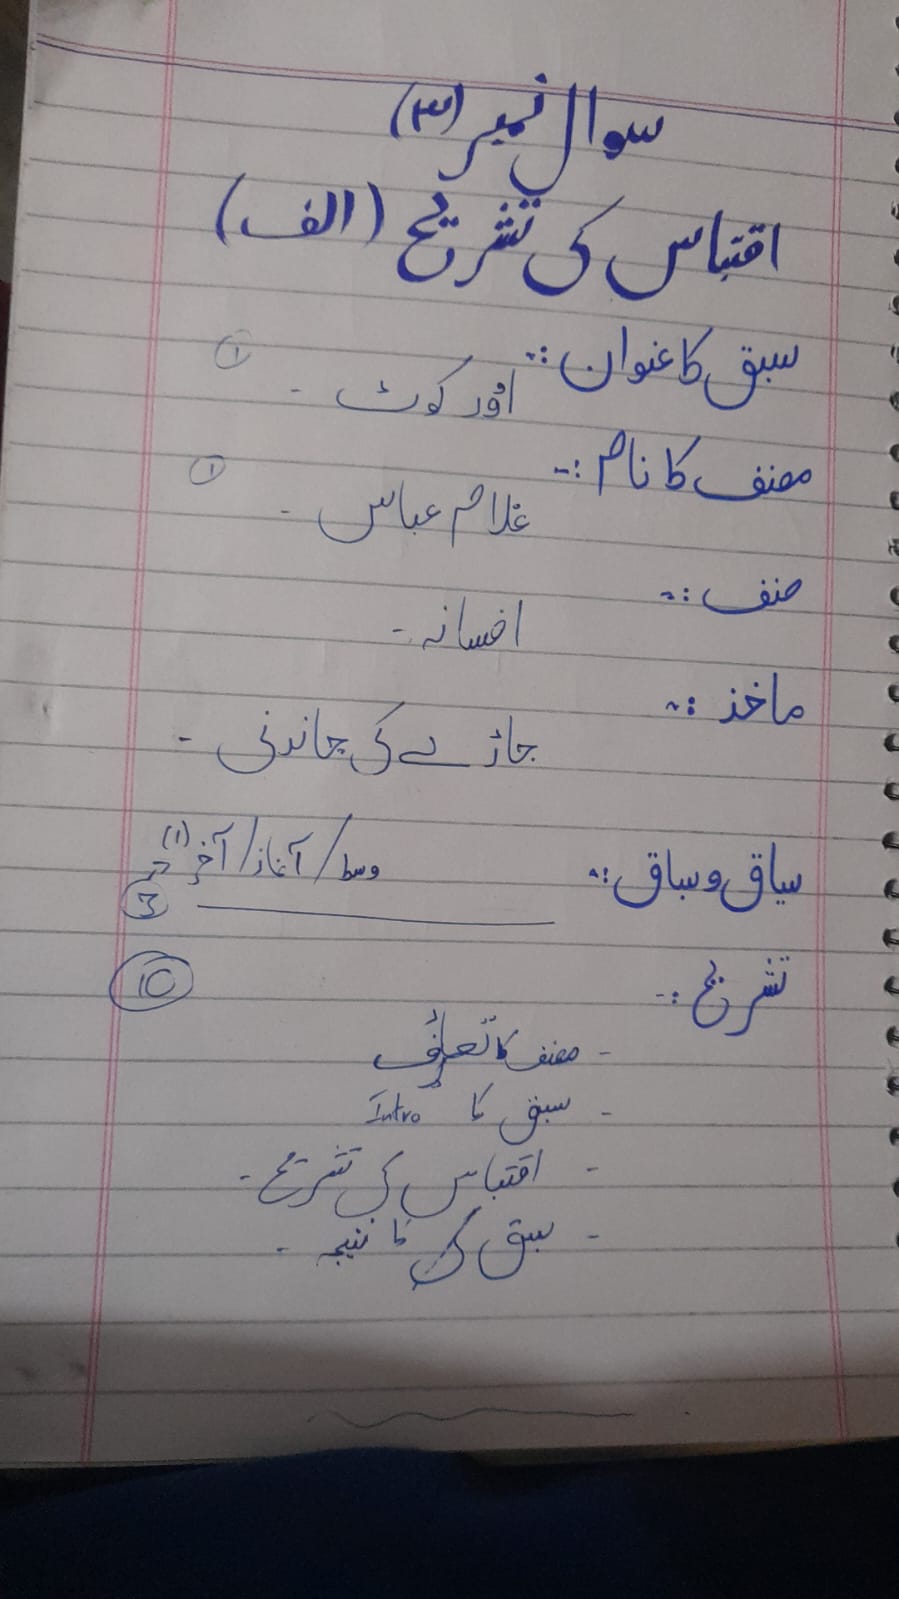 سوال نمبر (۳)
اقتباس کی تشریح (الف)
سبق کا عنوان :~ ①
اوور کوٹ ۔
مصنف کا نام :~ ①
غلام عباس ۔
صنف :~
افسانہ ۔
ماخذ :~
جاڑے کی چاندنی ۔
سیاق و سباق :~ وسط / آغاز / آخر (۱)
3
تشریح :~ 10
- مصنف کا تعارف
- سبق کا Intro
- اقتباس کی تشریح ۔
- سبق کا نتیجہ ۔